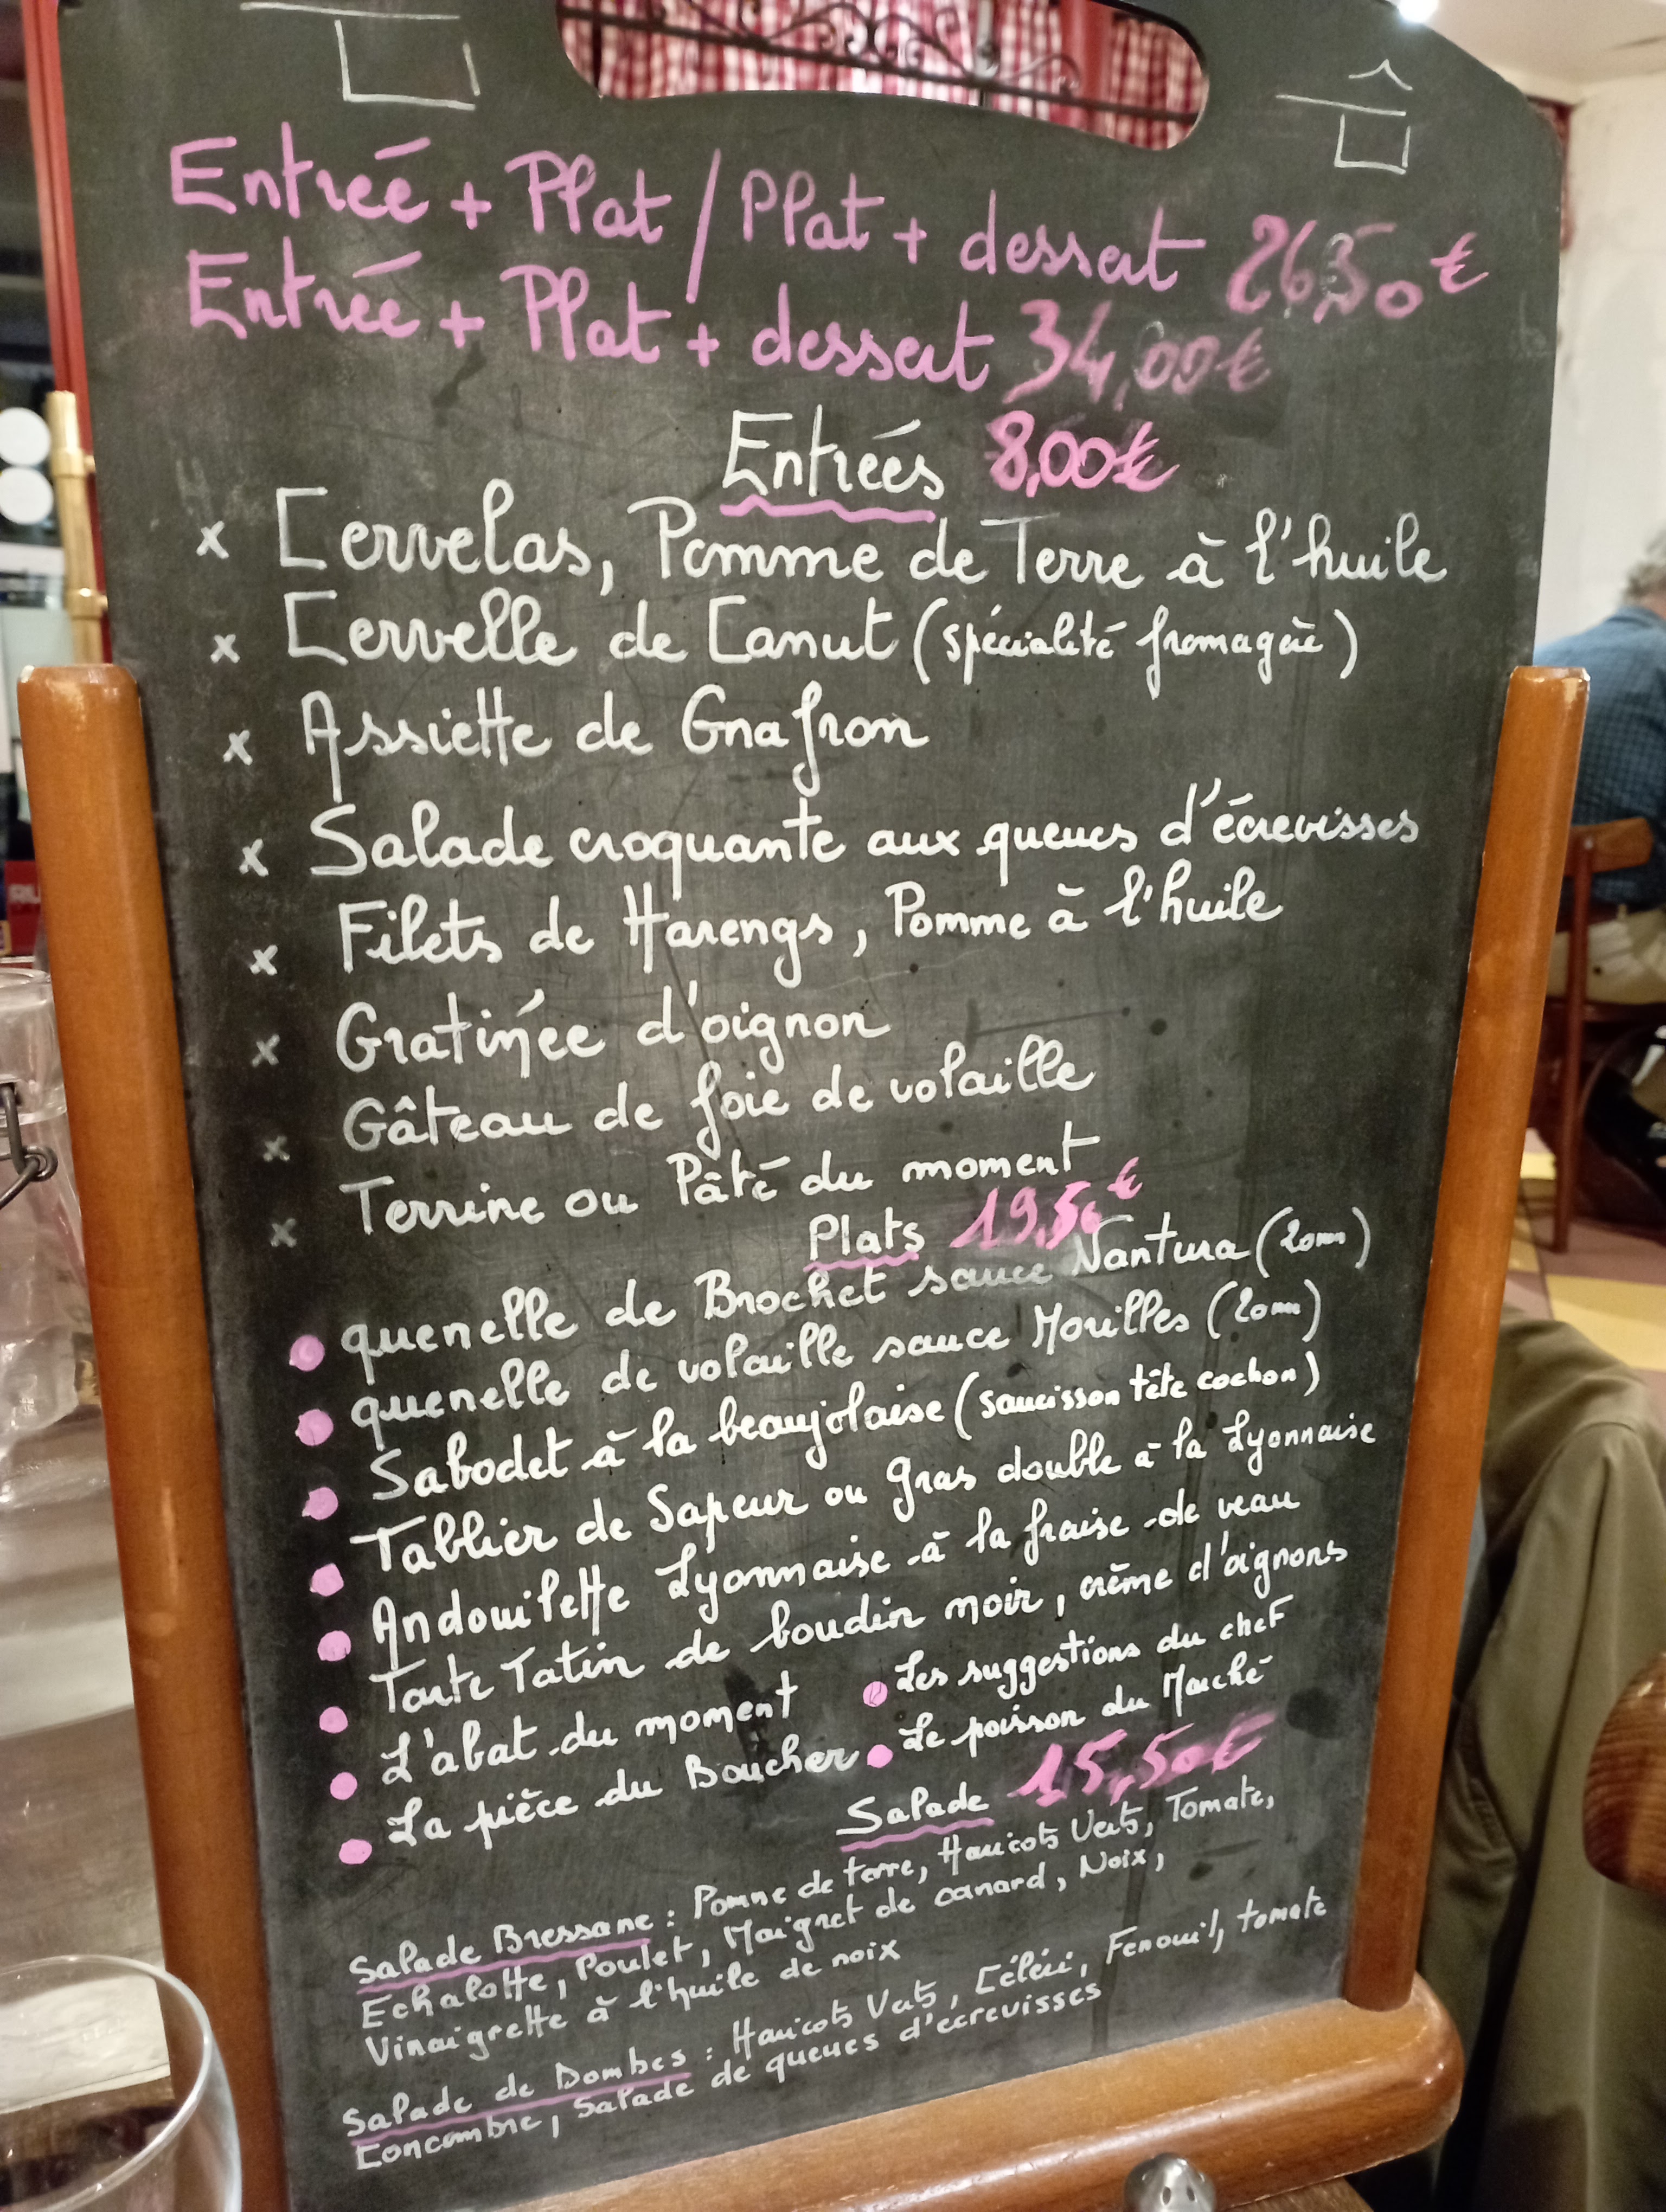 Entrée + Plat / Plat + dessert 26,50 €
Entrée + Plat + dessert 34,00 €
Entrées 8,00 €
x Cervelas, Pomme de Terre à l'huile
x Cervelle de Canut (spécialité fromagère)
x Assiette de Gnafron
x Salade croquante aux queues d'écrevisses
x Filets de Harengs, Pomme à l'huile
x Gratinée d'oignon
x Gâteau de foie de volaille
x Terrine ou Pâté du moment
Plats 19,50 €
• quenelle de Brochet sauce Nantua (20mn)
• quenelle de volaille sauce Morilles (20mn)
• Sabodet à la beaujolaise (saucisson tête cochon)
• Tablier de Sapeur ou gras double à la Lyonnaise
• Andouillette Lyonnaise à la fraise de veau
• Tarte Tatin de boudin noir, crème d'oignons
• L'abat du moment • Les suggestions du chef
• La pièce du Boucher • Le poisson du Marché
Salade 15,50 €
Salade Bressane : Pomme de terre, Haricots Verts, Tomate,
Echalotte, Poulet, Maigret de canard, Noix,
Vinaigrette à l'huile de noix
Salade de Dombes : Haricots Verts, Céléri, Fenouil, tomate
Concombre, Salade de queues d'écrevisses